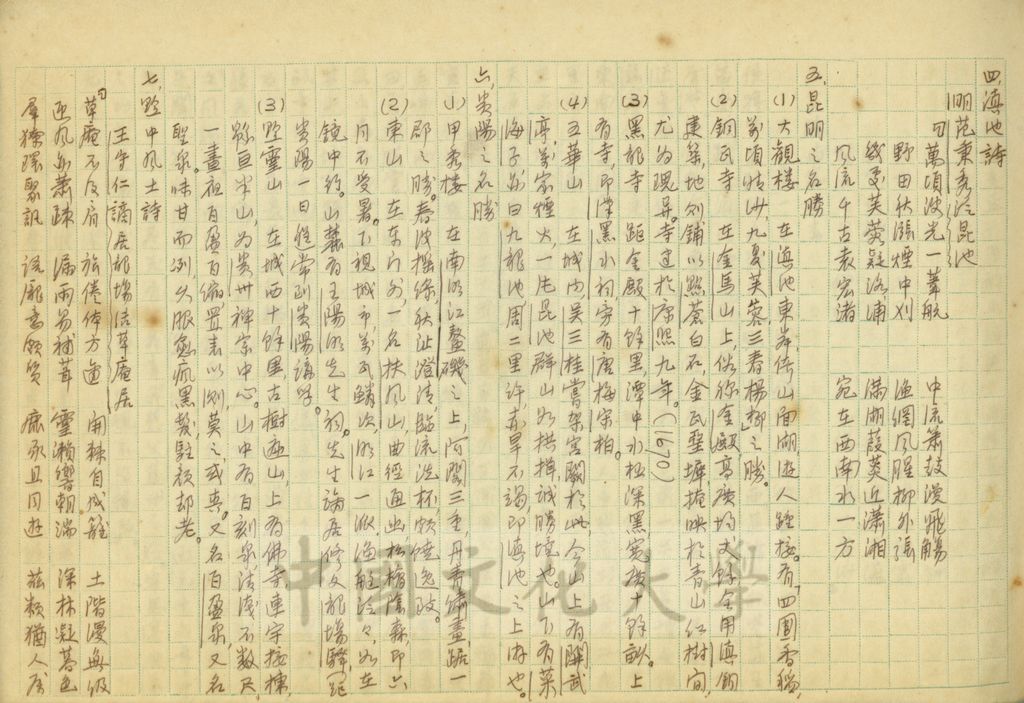 四、滇池詩
明范秉秀泛昆池
萬頃波光一葦航 中流簫鼓漫飛觴
野田秋漲煙中刈 漁網風腥柳外張
幾處芙蓉疑洛浦 滿湖葭菼近瀟湘
風流千古袁宏渚 宛在西南水一方
五、昆明之名勝
(1)大觀樓 在滇池東岸倚山面湖,遊人踵接。有「四圍香稻,
萬頃晴沙,九夏芙蓉,三春楊柳」之勝。
(2)銅瓦寺 在金馬山上,俗稱金殿,高廣均丈餘,全用滇銅
建築,地則鋪以點蒼白石,金瓦璧墀,掩映於青山紅樹間,
尤為瑰異。寺建於康熙九年。(1670)
(3)黑龍寺 距金殿十餘里,潭中水極深黑,寬廣十餘畝。上
有寺,即漢黑水祠,旁有唐梅宋柏。
(4)五華山 在城內吳三桂嘗架宮闕於此,今山上有關武
亭,萬家煙火,一片昆池,群山如拱揖,誠勝境也。山下有菜
海子,亦曰九龍池,周二里許,亢旱不竭,即滇池之上游也。
六、貴陽之名勝
(1)甲秀樓 在南明江鼇磯之上,阿閣三重,丹青繡畫,踞一
郡之勝。春波搖綠,秋沚澄清,臨流洗杯,頗饒逸致。
(2)東山 在東門外,一名扶風山,曲徑通幽,松檜陰森,即六
月不受暑。下視城市,萬瓦鱗次,明江一派,漁舠泛泛,如在
鏡中行。山麓有王陽明先生祠。先生謫居修文龍場驛,距
貴陽一日程,常到貴陽講學。
(3)黔靈山 在城西十餘里,古樹遍山,上有佛寺,連宇接棟,
綿亙半山,為貴州禪宗中心。山中有百刻泉,清淺不數尺,
一晝夜百盈百縮,置表以測,莫之或爽。又名百盈泉,又名
聖泉。味甘而冽,久服愈痾,黑鬢駐顏却老。
七、黔中風土詩
王守仁謫居龍場結草庵居
草庵不及肩 旅倦体方適 開棘自成籬 土階漫無級
迎風亦蕭疎 漏雨易補葺 靈瀨響朝湍 深林凝暮色
羣獠環聚訊 語龐意頗質 鹿豕且同遊 茲類猶人屬
中國文化大學